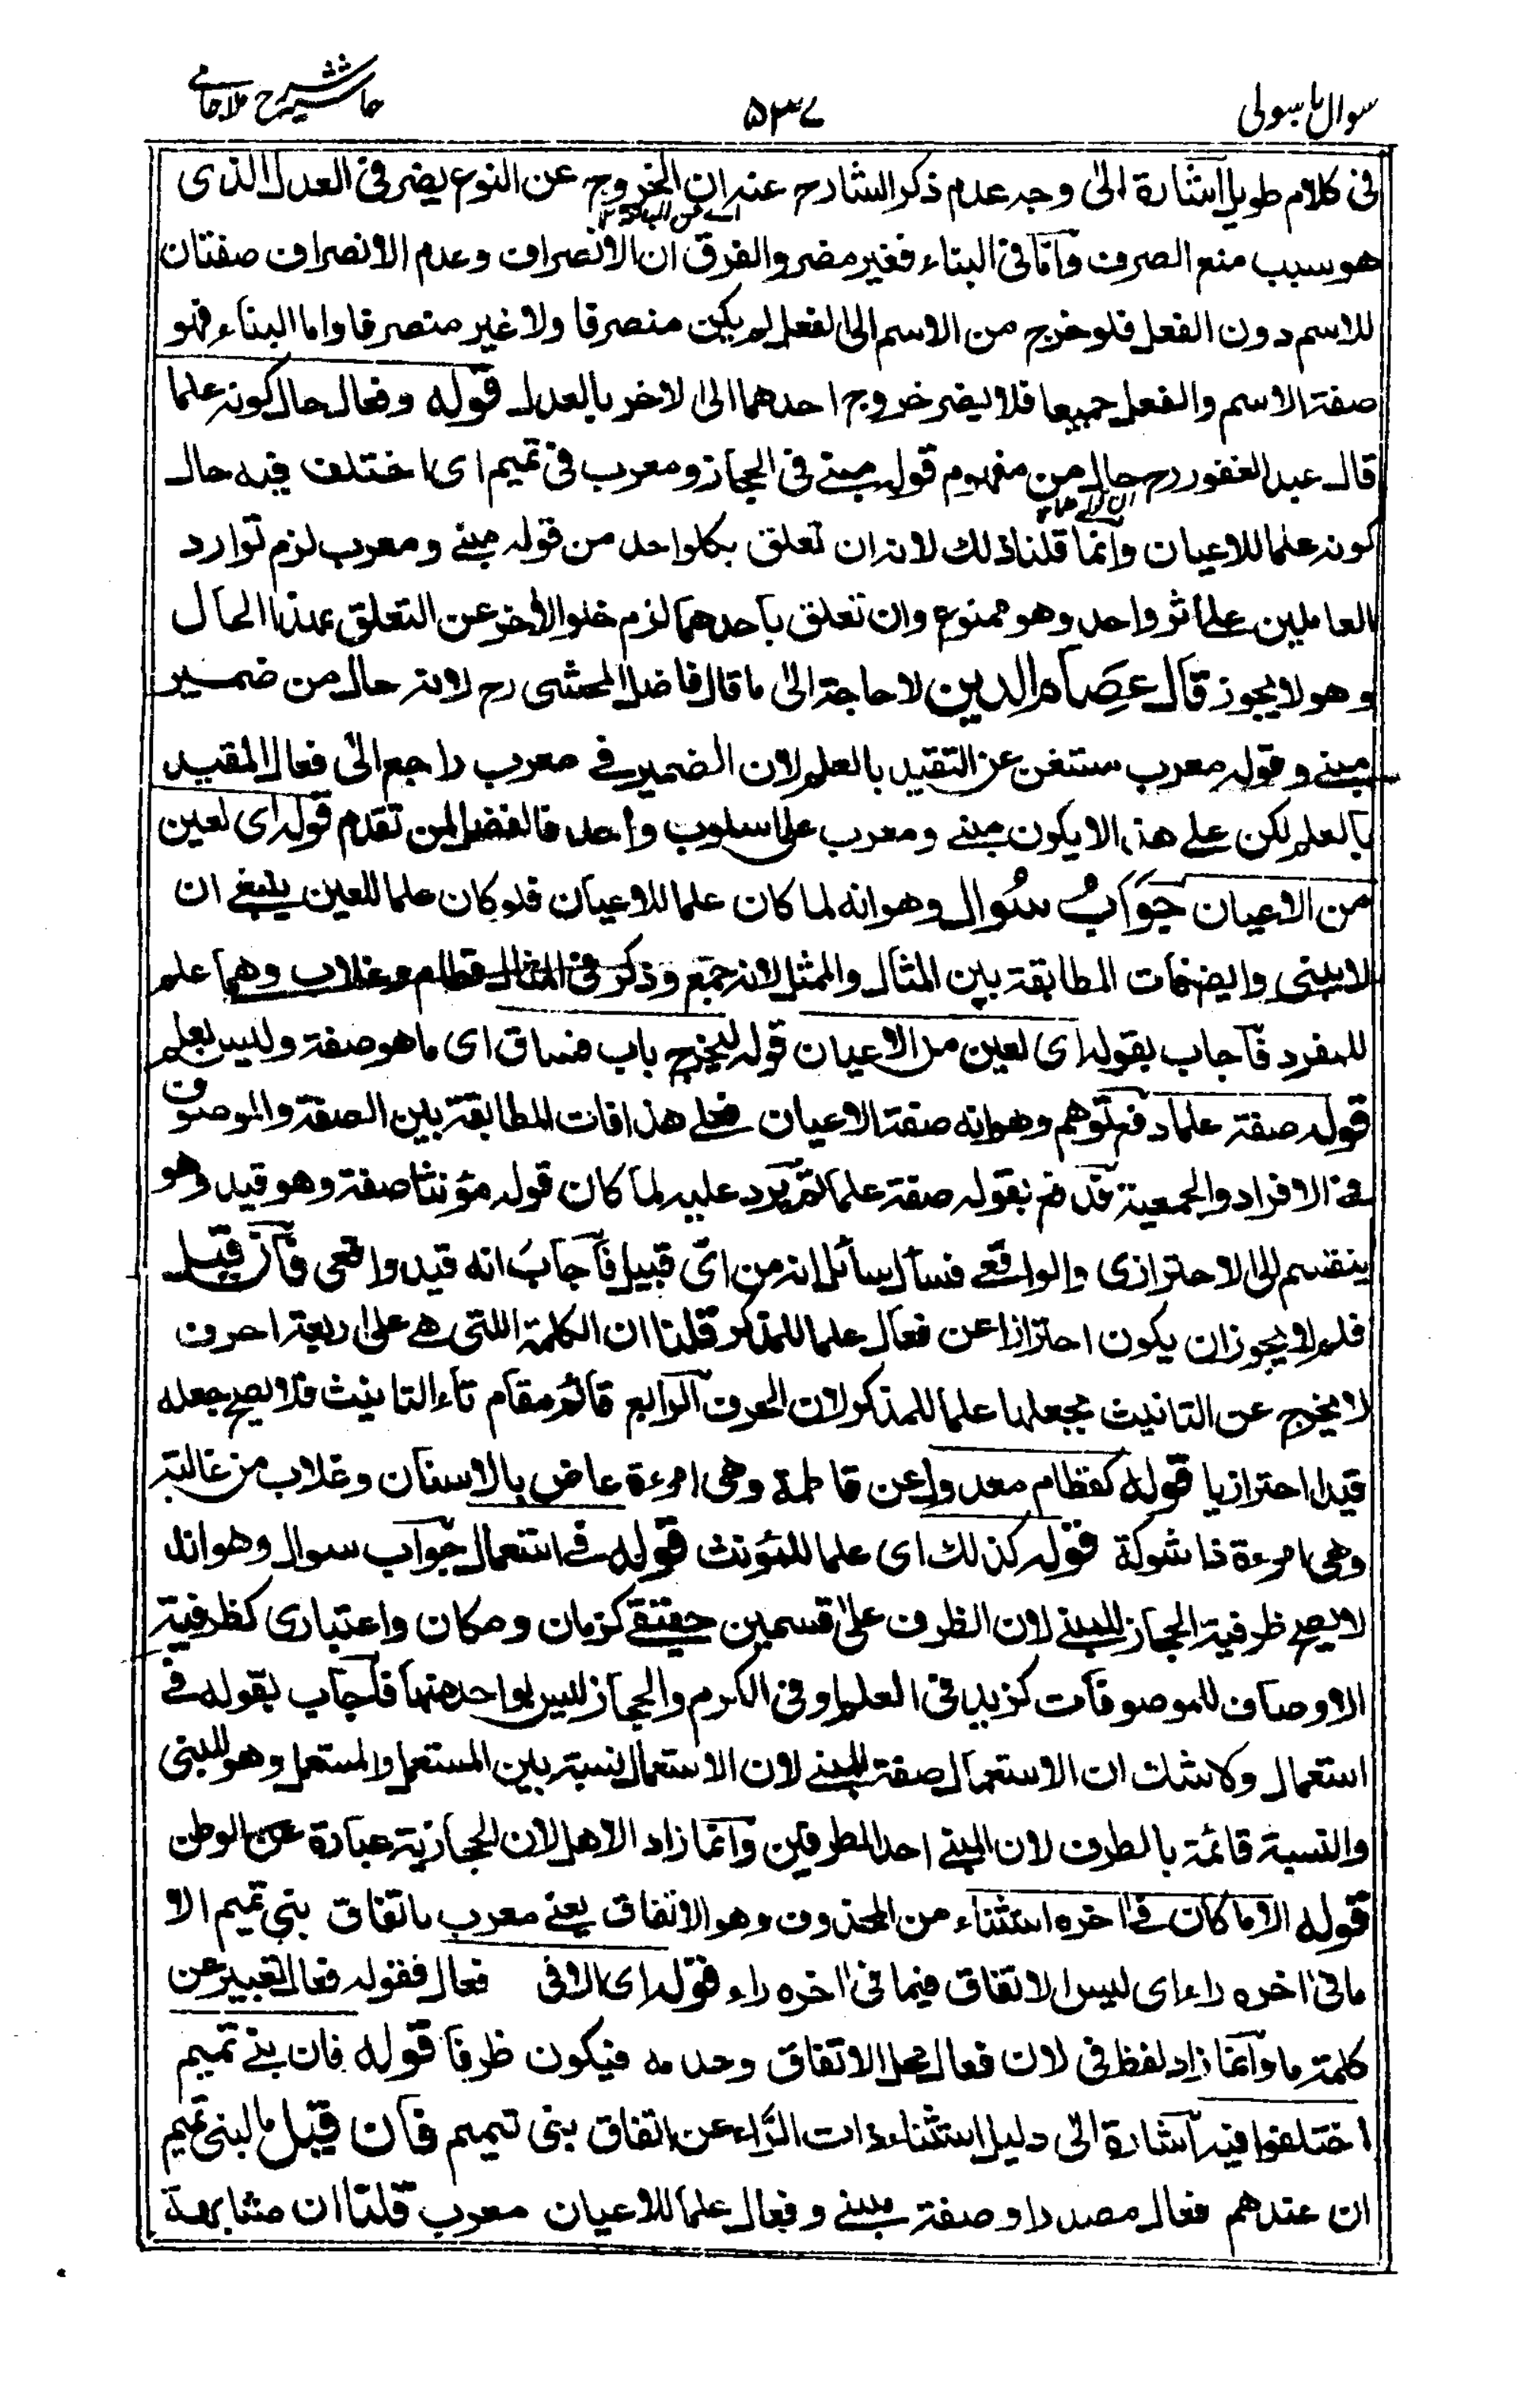 سوال باسولی
۵۳۷
حاشیہ شرح ملا جامی
فی کلام طویل اشارة الی وجه عدم ذکر الشارح عنه ان الخروج عن النوع یضر فی العدل الذی
هو سبب منع الصرف واما فی البناء فغیر مضر والفرق ان الانصراف وعدم الانصراف صفتان
للاسم دون الفعل فلو خرج من الاسم الی الفعل لم یکن منصرفا ولا غیر منصرفا واما البناء فهو
صفة الاسم والفعل جمیعا فلا یضر خروج احدهما الی الاخر بالعدل قوله وفعال حال کونه علما
قال عبد الغفور رح حال من مفهوم قوله مبنی فی الحجاز ومعرب فی تمیم ای اختلف فیه حال
کونه علما للاعیان وانما قلنا ذلك لانه ان تعلق بکلواحد من قوله مبنی ومعرب لزم توارد
العاملین علی اثر واحد وهو ممنوع وان تعلق باحدهما لزم خلو الاخر عن التعلق بهذا الحال
وهو لا یجوز قال عصام الدین لا حاجة الی ما قال فاضل المحشی رح لانه حال من ضمیر
مبنی وقوله معرب مستغن عن التقید بالعلم لان الضمیر فی معرب راجع الی فعال المقید
بالعلم لکن علی هذا لا یکون مبنی ومعرب علی اسلوب واحد فالفضل لمن تقدم قوله ای لعین
من الاعیان جواب سوال وهو انه لما کان علما للاعیان فلو کان علما للعین ینبغی ان
لا یبنی وایضا فات المطابقة بین المثال والممثل لانه جمع وذکر فی المثال قطام وغلاب وهما علم
للمفرد فاجاب بقوله ای لعین من الاعیان قوله لیخرج باب فساق ای ما هو صفة ولیس بعلم
قوله صفة علما دفع توهم وهو انه صفة الاعیان فعلی هذا فات المطابقة بین الصفة والموصوف
فی الافراد والجمعیة فدفع بقوله صفة علما ثم یرد علیه لما کان قوله مؤنثا صفة وهو قید وهو
ینقسم الی الاحترازی والواقعی فسأل سائل انه من ای قبیل فاجاب انه قید واقعی فان قیل
فلم لا یجوز ان یکون احترازا عن فعال علما للمذکر قلنا ان الکلمة اللتی هی علی اربعة احرف
لا یخرج عن التانیث بجعلها علما للمذکر لان الحرف الرابع قائم مقام تاء التانیث فلا یصح جعله
قیدا احترازیا قوله کقطام معدولة عن قاطمة وهی امرءة عاض بالاسنان وغلاب من غالبة
وهی امرءة ذا شوکة قوله کذلك ای علما للمؤنث قوله فی استعمال جواب سوال وهو انه
لا یصح ظرفیة الحجاز للمبنی لان الظرف علی قسمین حقیقی کزمان ومکان واعتباری کظرفیة
الاوصاف للموصوفات کزید فی العلم او فی الکرم والحجاز لیس بواحد منهما فاجاب بقوله فی
استعمال ولا شك ان الاستعمال صفة للمبنی لان الاستعمال نسبة بین المستعمل والمستعمل وهو المبنی
والنسبة قائمة بالطرف لان المبنی احد الطرفین وانما زاد الاهل لان الحجازیة عبارة عن الوطن
قوله الا ما کان فی اخره استثناء من المحذوف وهو الاتفاق یعنی معرب باتفاق بنی تمیم الا
ما فی اخره راء ای لیس الاتفاق فیما فی اخره راء قوله ای الا فی فعال فقوله فعال تعبیر عن
کلمة ما وانما زاد لفظ فی لان فعال محل الاتفاق وعدمه فیکون ظرفا قوله فان بنی تمیم
اختلفوا فیه اشارة الی دلیل استثناء ذات الراء عن اتفاق بنی تمیم فان قیل ما لبنی تمیم
ان عندهم فعال مصدرا وصفة مبنی وفعال علما للاعیان معرب قلنا ان مشابهة